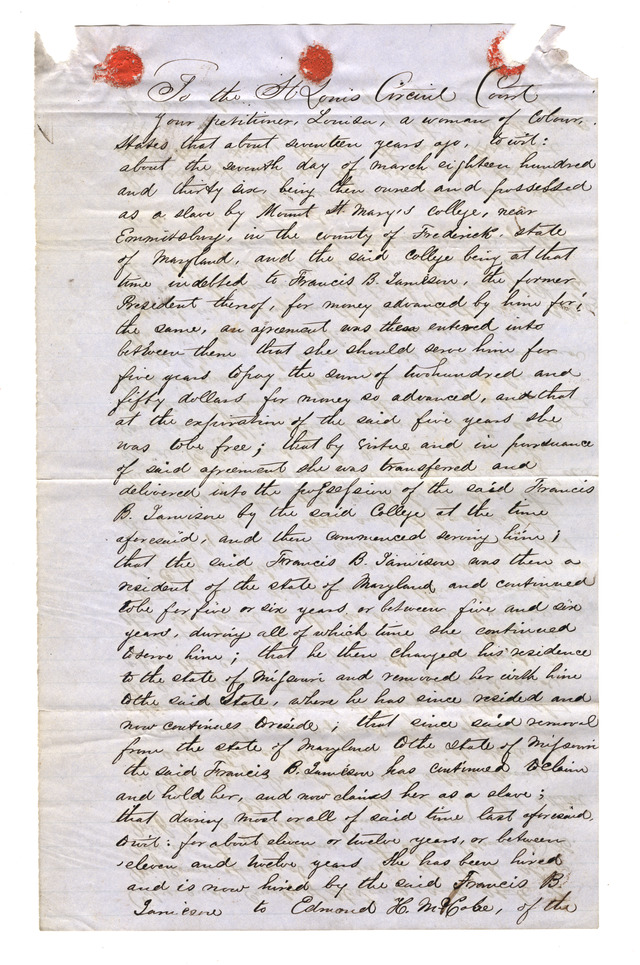 To the St Louis Circuit Court
Your petitioner, Louisa, a woman of Colour,
states that about seventeen years ago, towit:
about the seventh day of march eighteen hundred
and thirty six, being then owned and possessed
as a slave by Mount St Mary's college, near
Emmitsburg, in the county of Frederick, state
of Maryland, and the said college being at that
time indebted to Francis B. Jamison, the former
President thereof, for money advanced by him for
the same, an agreement was then entered into
between them that she should serve him for
five years to pay the sum of two hundred and
fifty dollars for money so advanced, and that
at the expiration of the said five years she
was to be free; that by virtue and in pursuance
of said agreement she was transferred and
delivered into the possession of the said Francis
B. Jamison by the said College at the time
aforesaid, and then commenced serving him;
that the said Francis B. Jamison was then a
resident of the state of Maryland and continued
to be for five or six years, or between five and six
years, during all of which time she continued
to serve him; that he then changed his residence
to the state of Missouri and removed her with him
to the said State, where he has since resided and
now continues to reside; that since said removal
from the state of Maryland to the state of Missouri
the said Francis B. Jamison has continued to claim
and hold her, and now claims her as a slave;
that during most or all of said time last aforesaid,
towit: for about eleven or twelve years, or between
eleven and twelve years she has been hired
and is now hired by the said Francis B.
Jamison to Edmond H. McCabe, of the